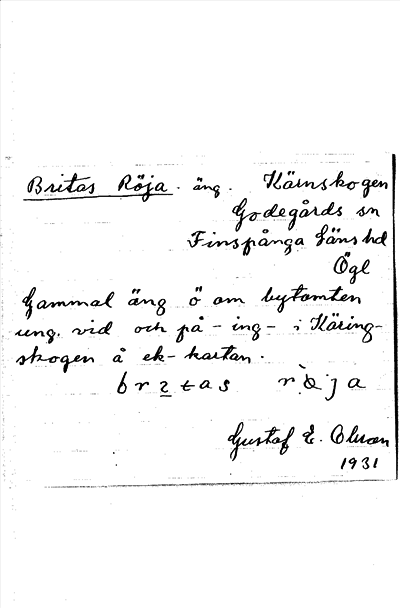 Britas Röja. äng. Kärnskogen
Godegårds sn
Finspånga läns hd
Ögl
Gammal äng ö om bytomten
ung. vid och på -ing- i Käring-
skogen å ek-kartan.
Gustaf E. Olsson
1931